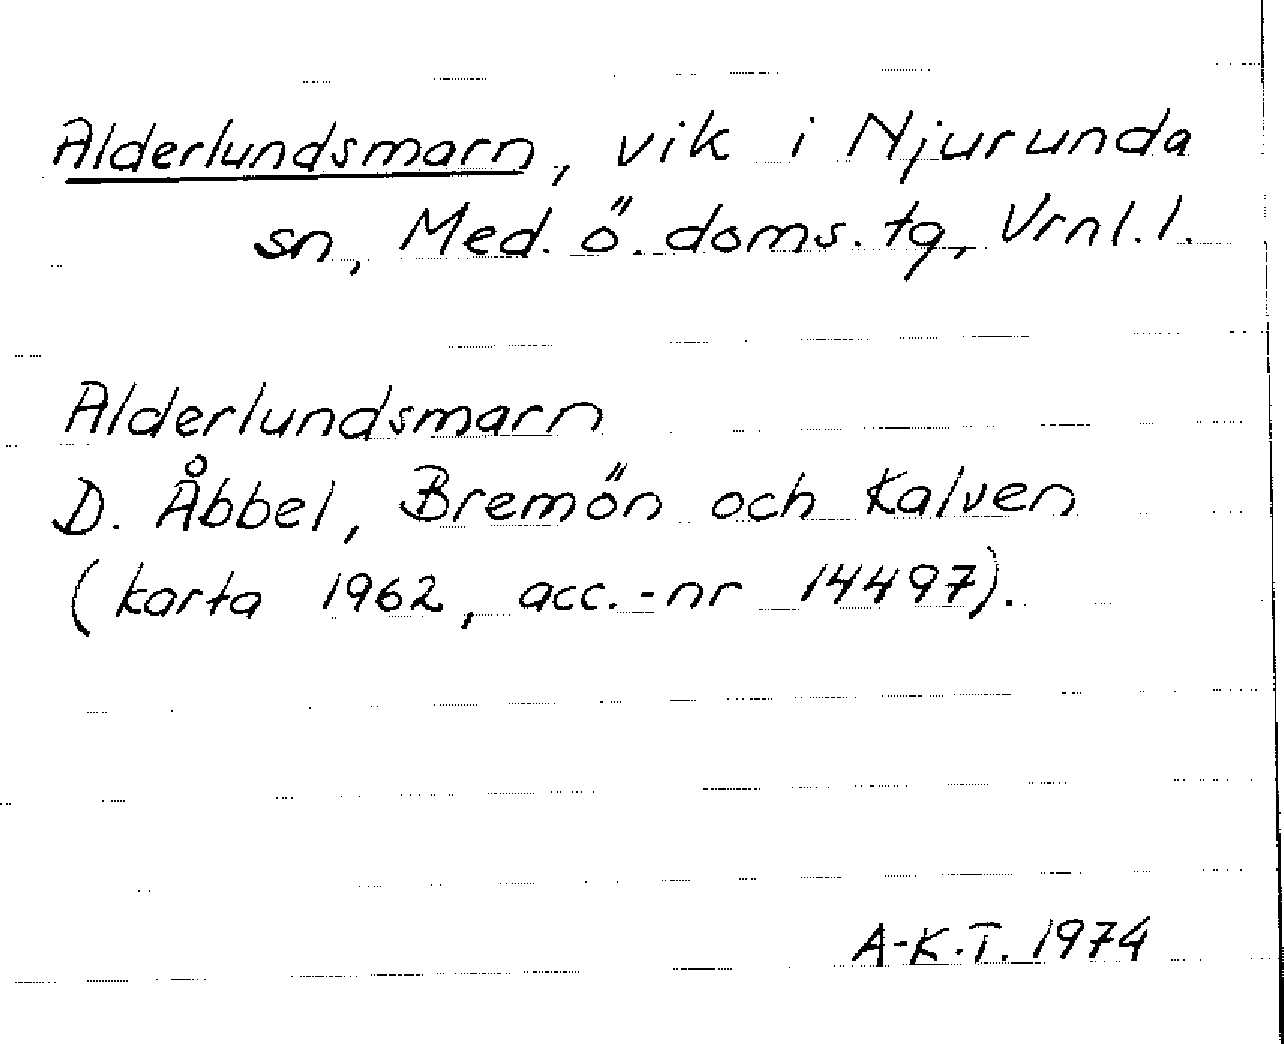 Alderlundsmarn, vik i Njurunda
sn, Med. ö. doms. tg, Vrnl. l.
Alderlundsmarn
D. Åbbel, Bremön och Kalven
(karta 1962, acc.-nr 14497).
A-K.T. 1974